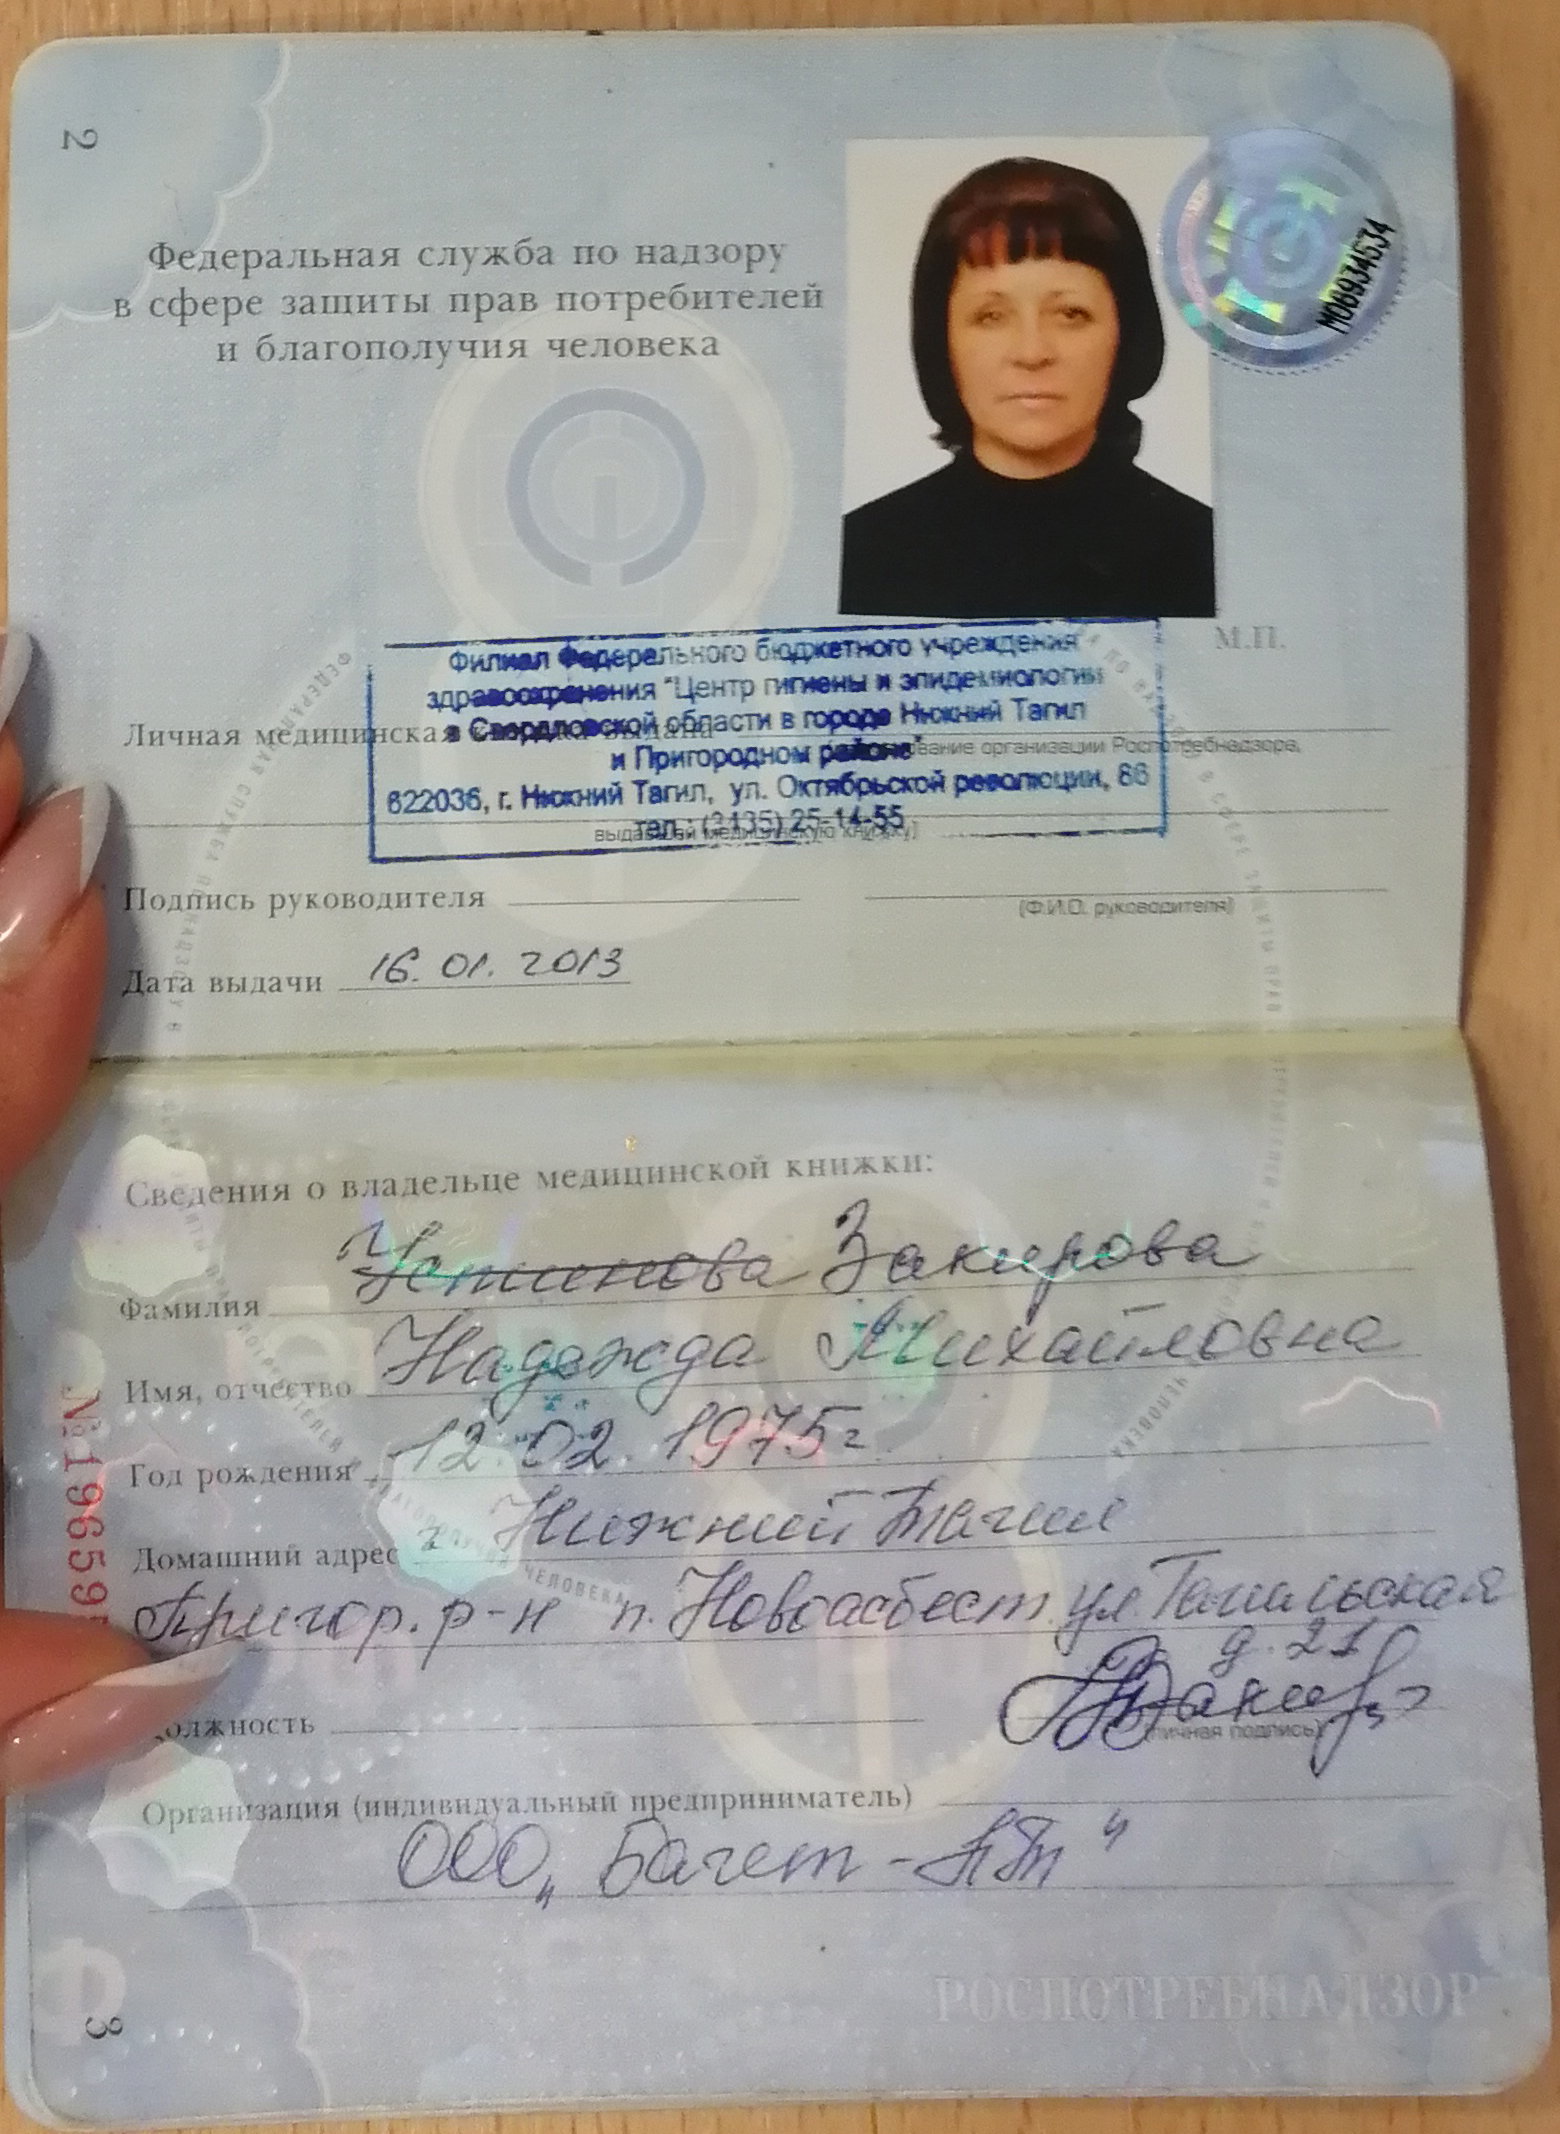 2
Федеральная служба по надзору
в сфере защиты прав потребителей
и благополучия человека
М0693453​4
М.П.
Филиал Федерального бюджетного учреждения
здравоохранения "Центр гигиены и эпидемиологии
в Свердловской области в городе Нижний Тагил
и Пригородном районе"
622036, г. Нижний Тагил, ул. Октябрьской революции, 86
тел.: (3435) 25-14-55
Личная медицинская книжка выдана
организации Роспотребнадзора,
выдавшей медицинскую книжку)
Подпись руководителя
(Ф.И.О. руководителя)
Дата выдачи 16.01.2013
Сведения о владельце медицинской книжки:
Фамилия Устинова Закирова
Имя, отчество Надежда Михайловна
Год рождения 12.02.1975г.
Домашний адрес г. Нижний Тагил
Пригор. р-н п. Новоасбест ул. Тагильская
д. 21
должность
(личная подпись)
Организация (индивидуальный предприниматель)
ООО „Багет-НТ"
№196595
РОСПОТРЕБНАДЗОР
3